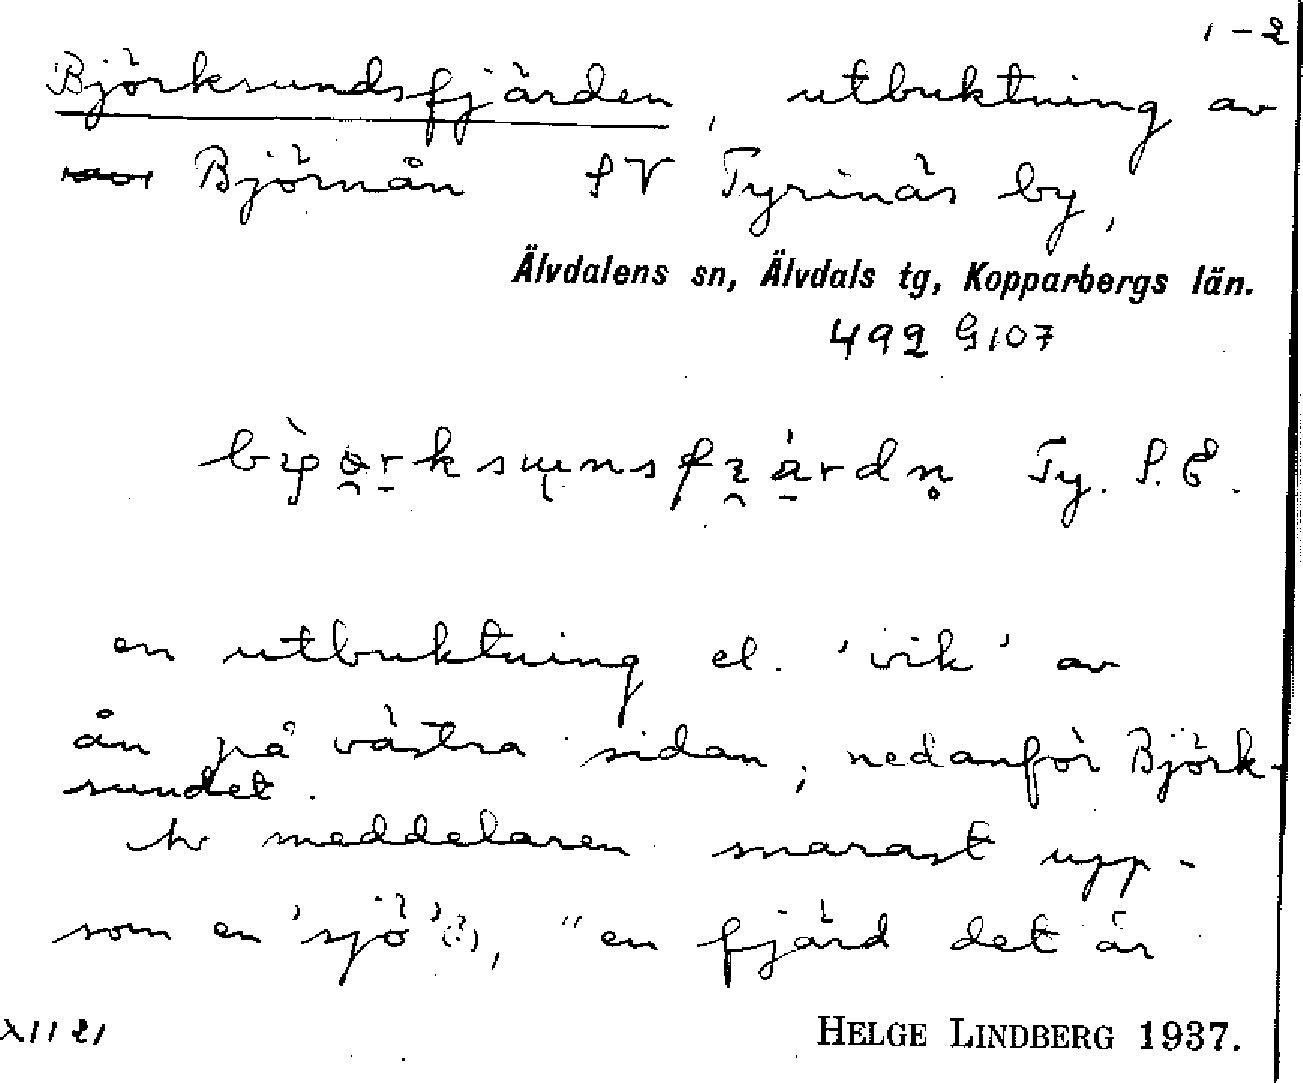 1-2
Björksundsfjärden, utbuktning av
Björnån SV Tyrinäs by,
Älvdalens sn, Älvdals tg, Kopparbergs län.
492 G107
Ty. S. E.
en utbuktning el. 'vik' av
ån på västra sidan, nedanför Björk-
sundet.
meddelaren snarast upp-
som en 'sjö'(?), "en fjärd det är
HELGE LINDBERG 1937.